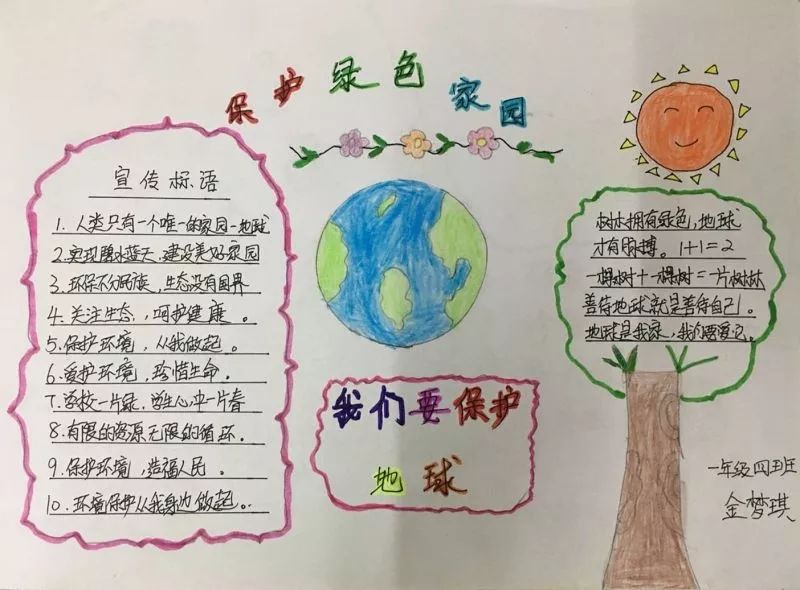 保护绿色家园
宣传标语
1. 人类只有一个唯一的家园-地球
2. 实现碧水蓝天，建设美好家园
3. 环保不分民族，生态没有国界
4. 关注生态，呵护健康。
5. 保护环境，从我做起。
6. 爱护环境，珍惜生命。
7. 学校一片绿，学生心中一片春
8. 有限的资源无限的循环.
9. 保护环境，造福人民。
10. 环境保护从我身边做起。
我们要保护
地球
树木拥有绿色,地球
才有脉搏。1+1=2
一棵树+一棵树=一片树林
善待地球就是善待自己。
地球是我家,我们要爱它。
一年级四班
金梦琪